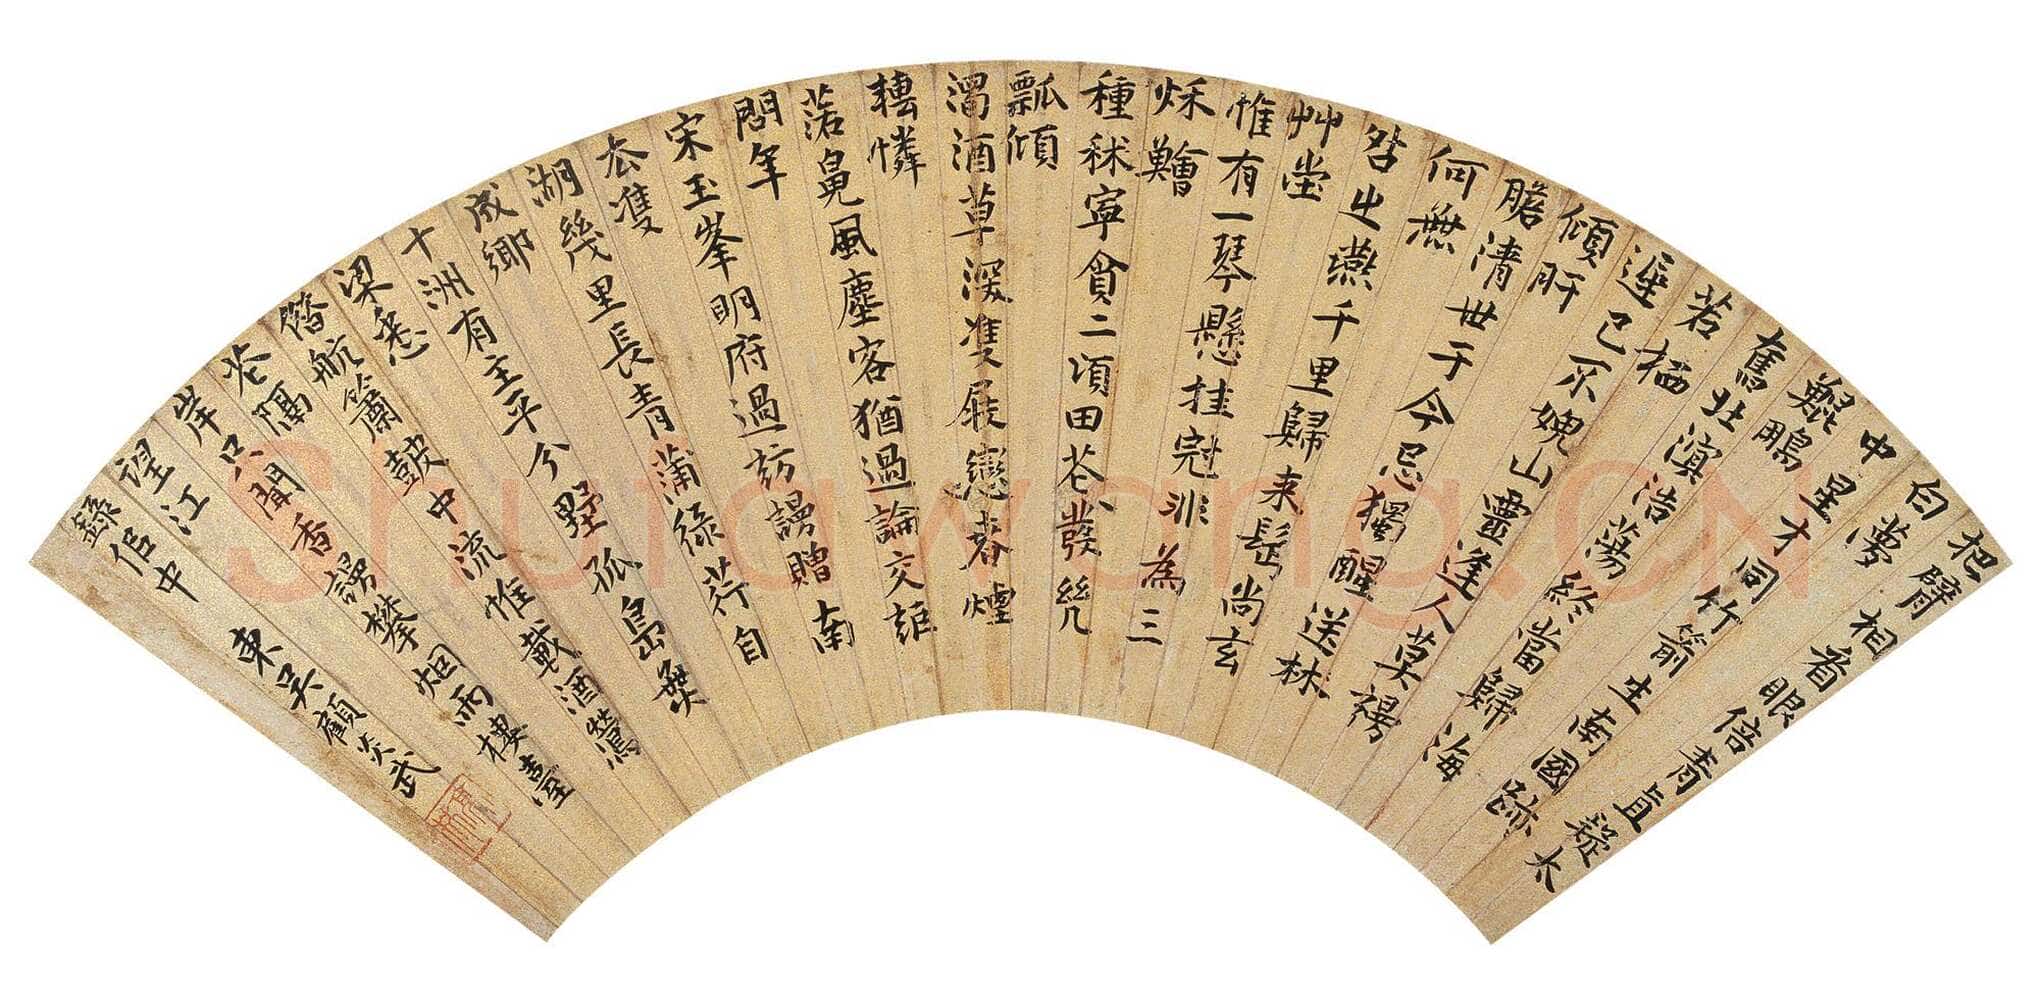 把臂相看眼倍青直疑太
白夢
中星才同竹箭生南國跡
鯤鵬
舊北滇浩蕩終當歸海
若栖
遲已不媿山靈逢人莫
傾肝
膽清世于今忌獨醒送林
何無
咎出燕千里歸来髩尚玄
艸堂
惟有一琴懸挂冠非為三
秌鱠
種秫寧貧二頃田花發幾
瓢傾
濁酒草深隻屐戀春煙
轉憐
落魄風塵客猶過論交
問年
宋玉峯明府過訪謾贈南
去隻
湖幾里長青蒲綠荇自
成鄉
十洲有主平分野孤島無
梁悉
航簫鼓中流惟載酒鶯
花隔
岸只聞香謾攀烟雨樓臺
望江
錄佀中
東吳顧炎武
Shufawang.CN